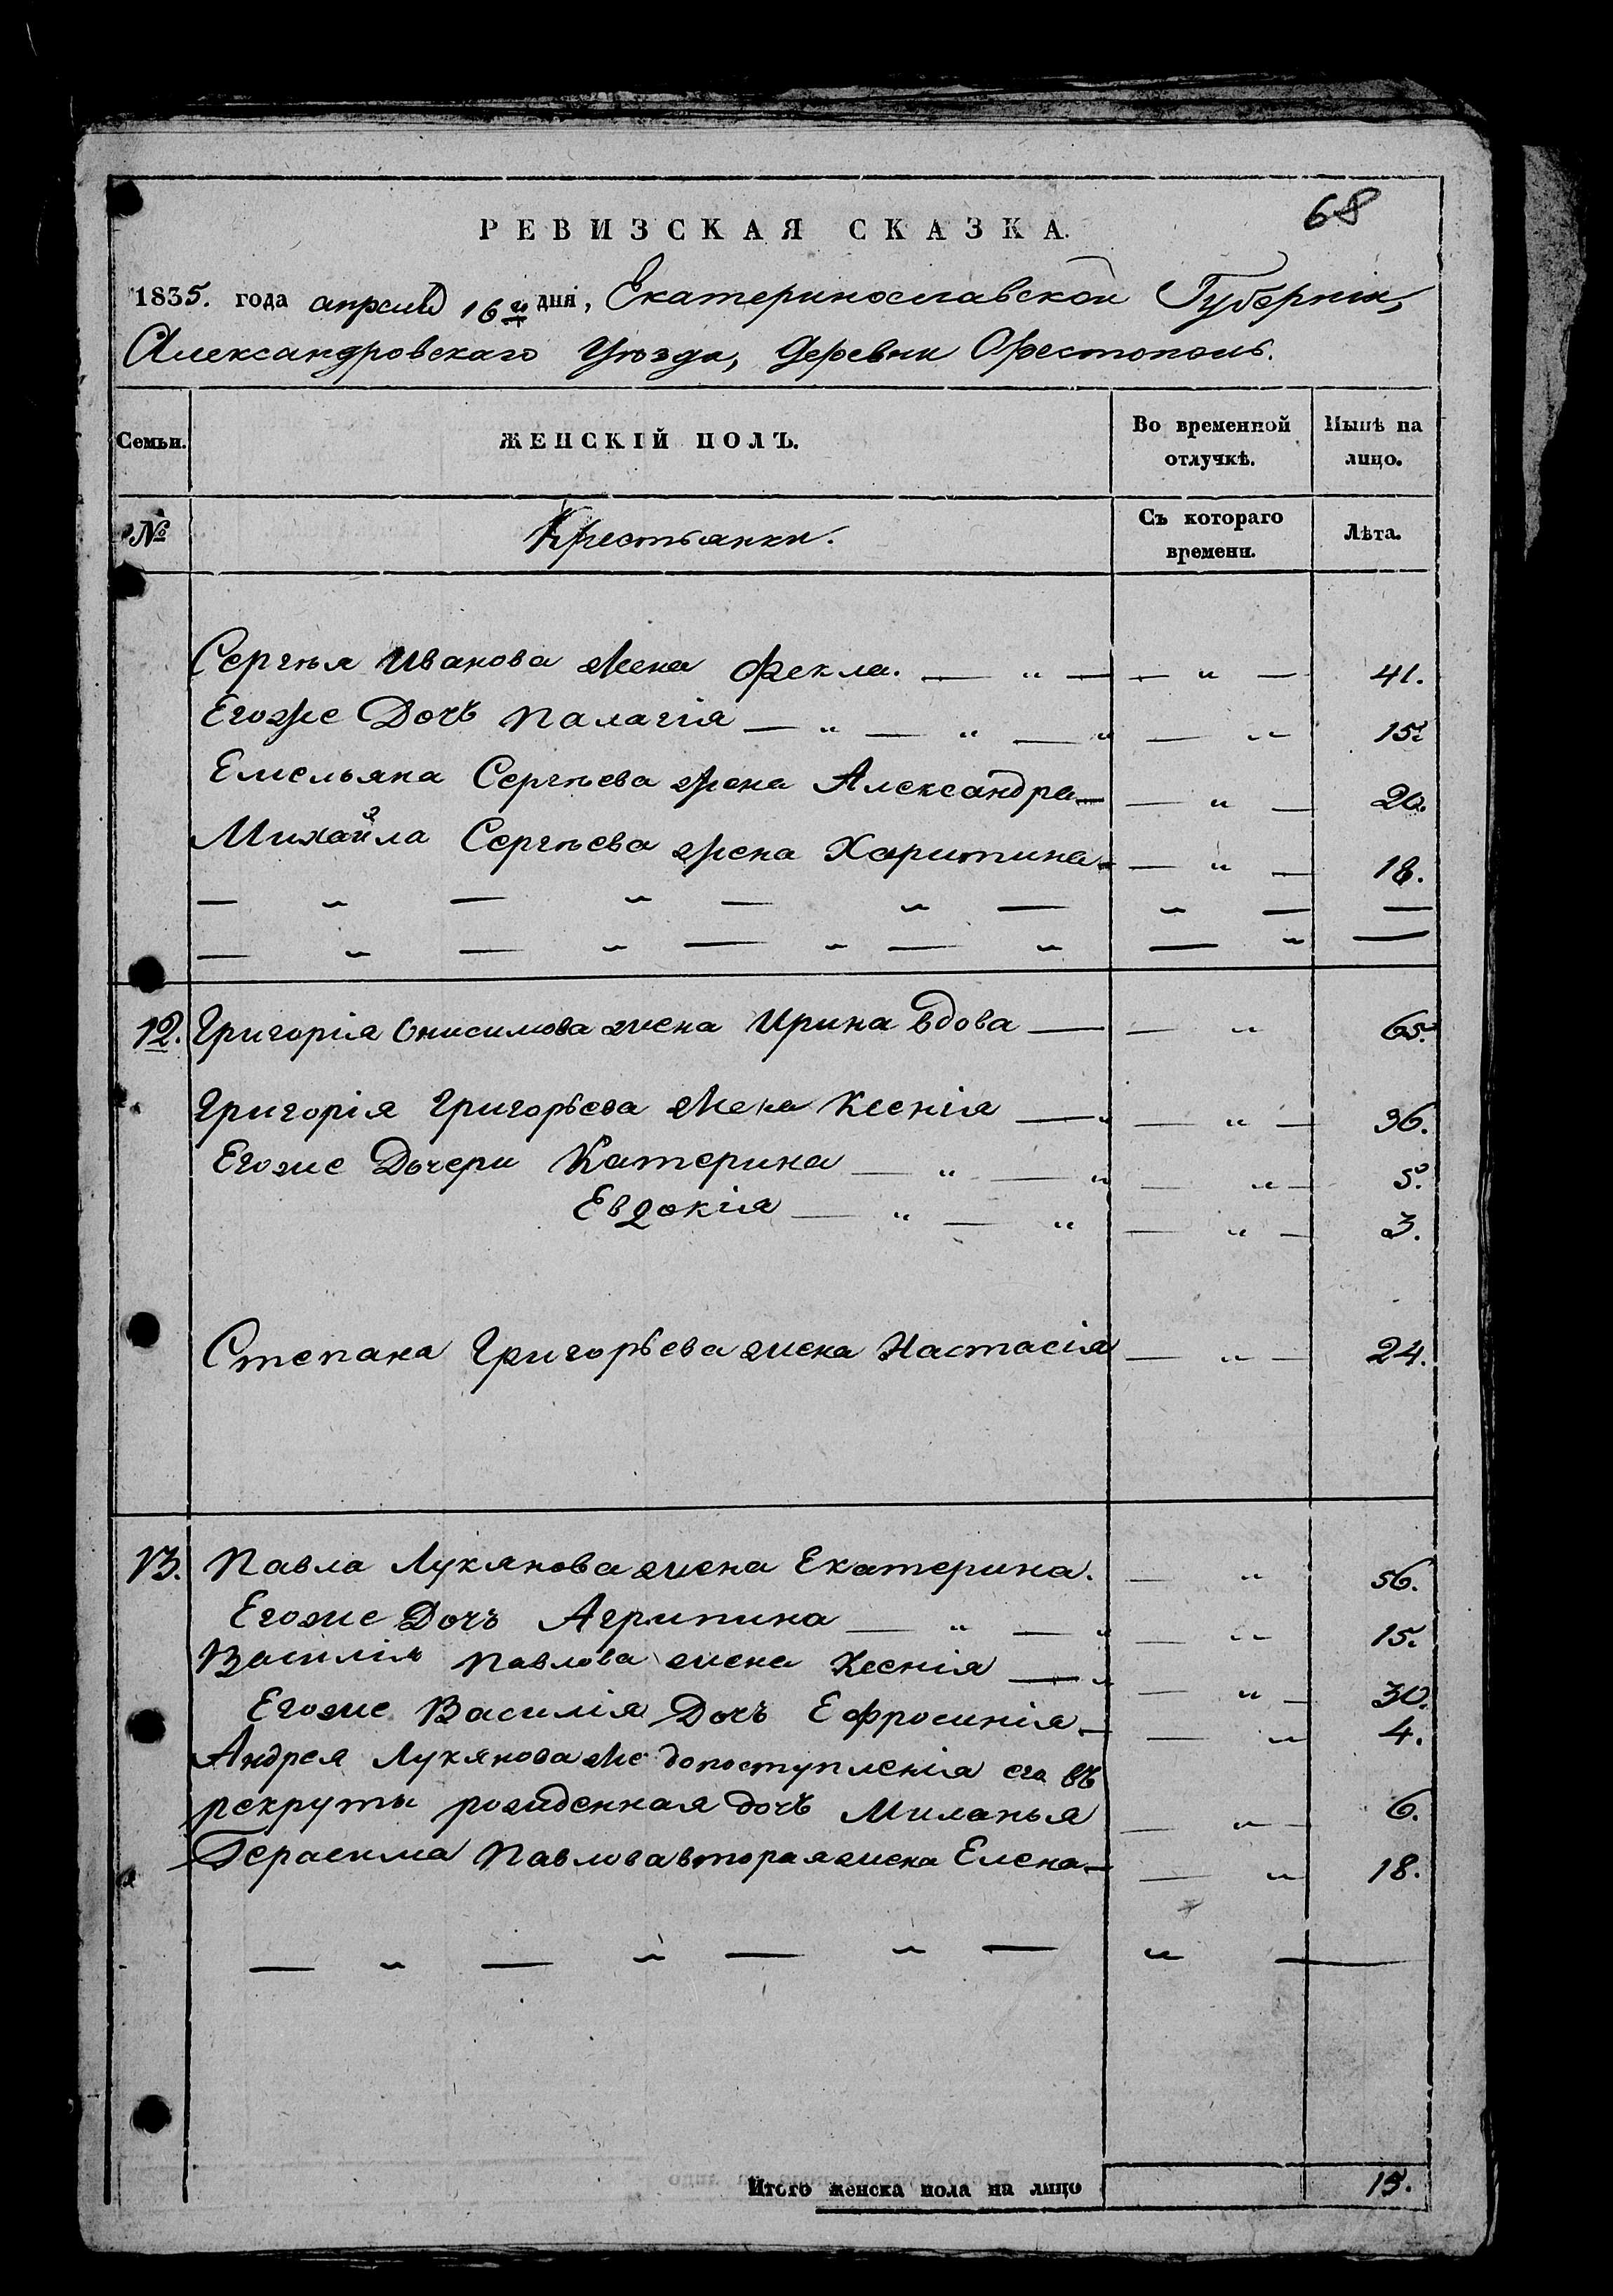 68
РЕВИЗСКАЯ СКАЗКА.
1835. года апреля 16 го дня, Екатеринославской Губерніи,
Александровскаго Уѣзда, Деревни Орестополь.
Семьи. ЖЕНСКІЙ ПОЛЪ. Во временной отлучкѣ. Нынѣ на лицо.
№ Крестьянки. Съ котораго времени. Лѣта.
Сергѣя Иванова жена Фекла. — „ — — „ — 41.
Егоже Дочь Палагія — „ — „ — „ — „ 15.
Емельяна Сергѣева жена Александра — — „ — 20.
Михайла Сергѣева жена Харитина — — „ — 18.
— „ — „ — „ — „ — —
— „ — „ — „ — „ — „ —
12. Григорія Онисимова жена Ирина вдова — — „ 65.
Григорія Григорьева жена Ксенія — „ — „ — 36.
Егоже Дочери Катерина — „ — „ — „ — 5.
Евдокія — „ — „ — „ — 3.
Степана Григорьева жена Настасія — „ — 24.
13. Павла Лукянова жена Екатерина. — „ 56.
Егоже Дочь Агрипина — „ — „ — „ 15.
Василія Павлова жена Ксенія — „ — „ — 30.
Егоже Василія Дочь Ефросинія — — „ 4.
Андрея Лукянова же допоступленія его въ
рекруты рожденная дочь Миланья — „ — 6.
Герасима Павлова вторая жена Елена — — „ 18.
— „ — „ — „ — „ —
Итого женска пола на лицо 15.